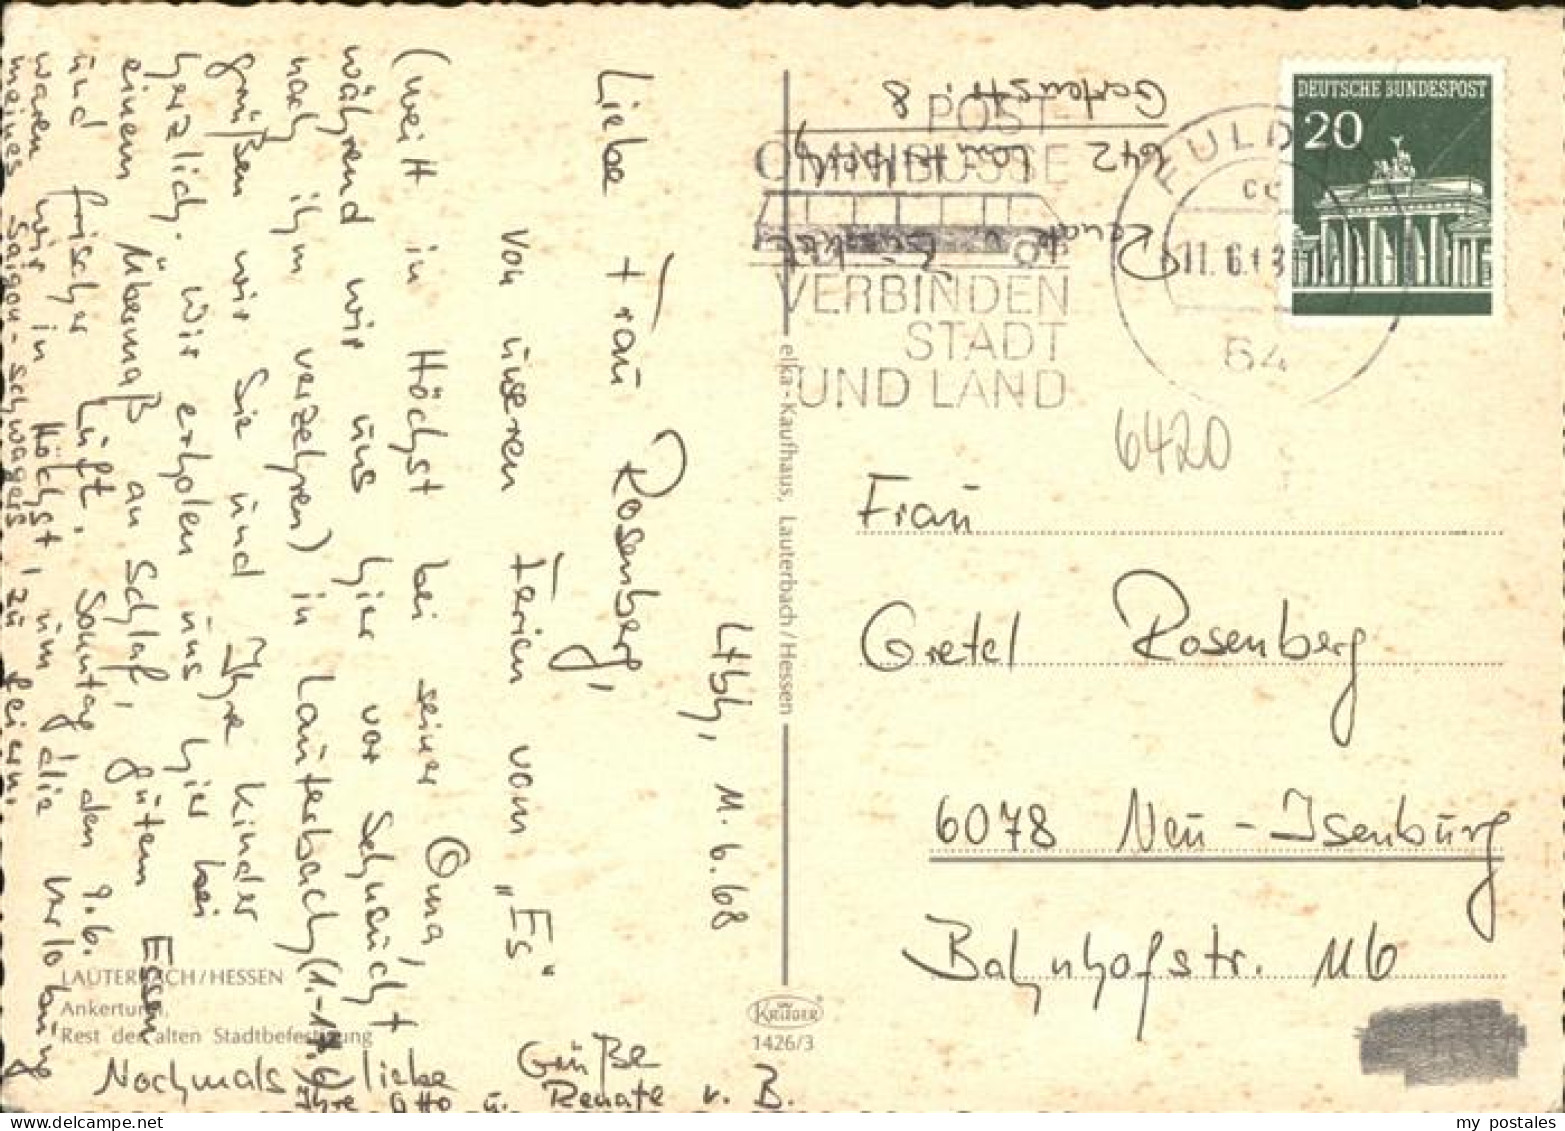 Ltbh, 11.6.68
Liebe Frau Rosenberg,
von unseren Ferien vom „Es“
(weilt in Höchst bei seiner Oma,
während wir uns hier vor Sehnsucht
nach ihm verzehren) in Lauterbach (1.-17.6.)
grüßen wir Sie und Ihre Kinder
herzlich. Wir erholen uns hier bei
einem Übermaß an Schlaf, gutem Essen
und frischer Luft. Sonntag den 9.6.
waren wir in Höchst, um die Verlobung
meines Saigon-Schwagers zu feiern.
Nochmals liebe Grüße
Ihre Otto u. Renate v. B.
LAUTERBACH/HESSEN
Ankerturm,
Rest der alten Stadtbefestigung
elka-Kaufhaus, Lauterbach/Hessen
KRÜGER
1426/3
Renate v.
642 Lauterbach
Gartenstr. 8
POST-
OMNIBUSSE
VERBINDEN
STADT
UND LAND
FULDA
cc
11.6.68
64
DEUTSCHE BUNDESPOST
20
6420
Frau
Gretel Rosenberg
6078 Neu-Isenburg
Bahnhofstr. 116
my postales